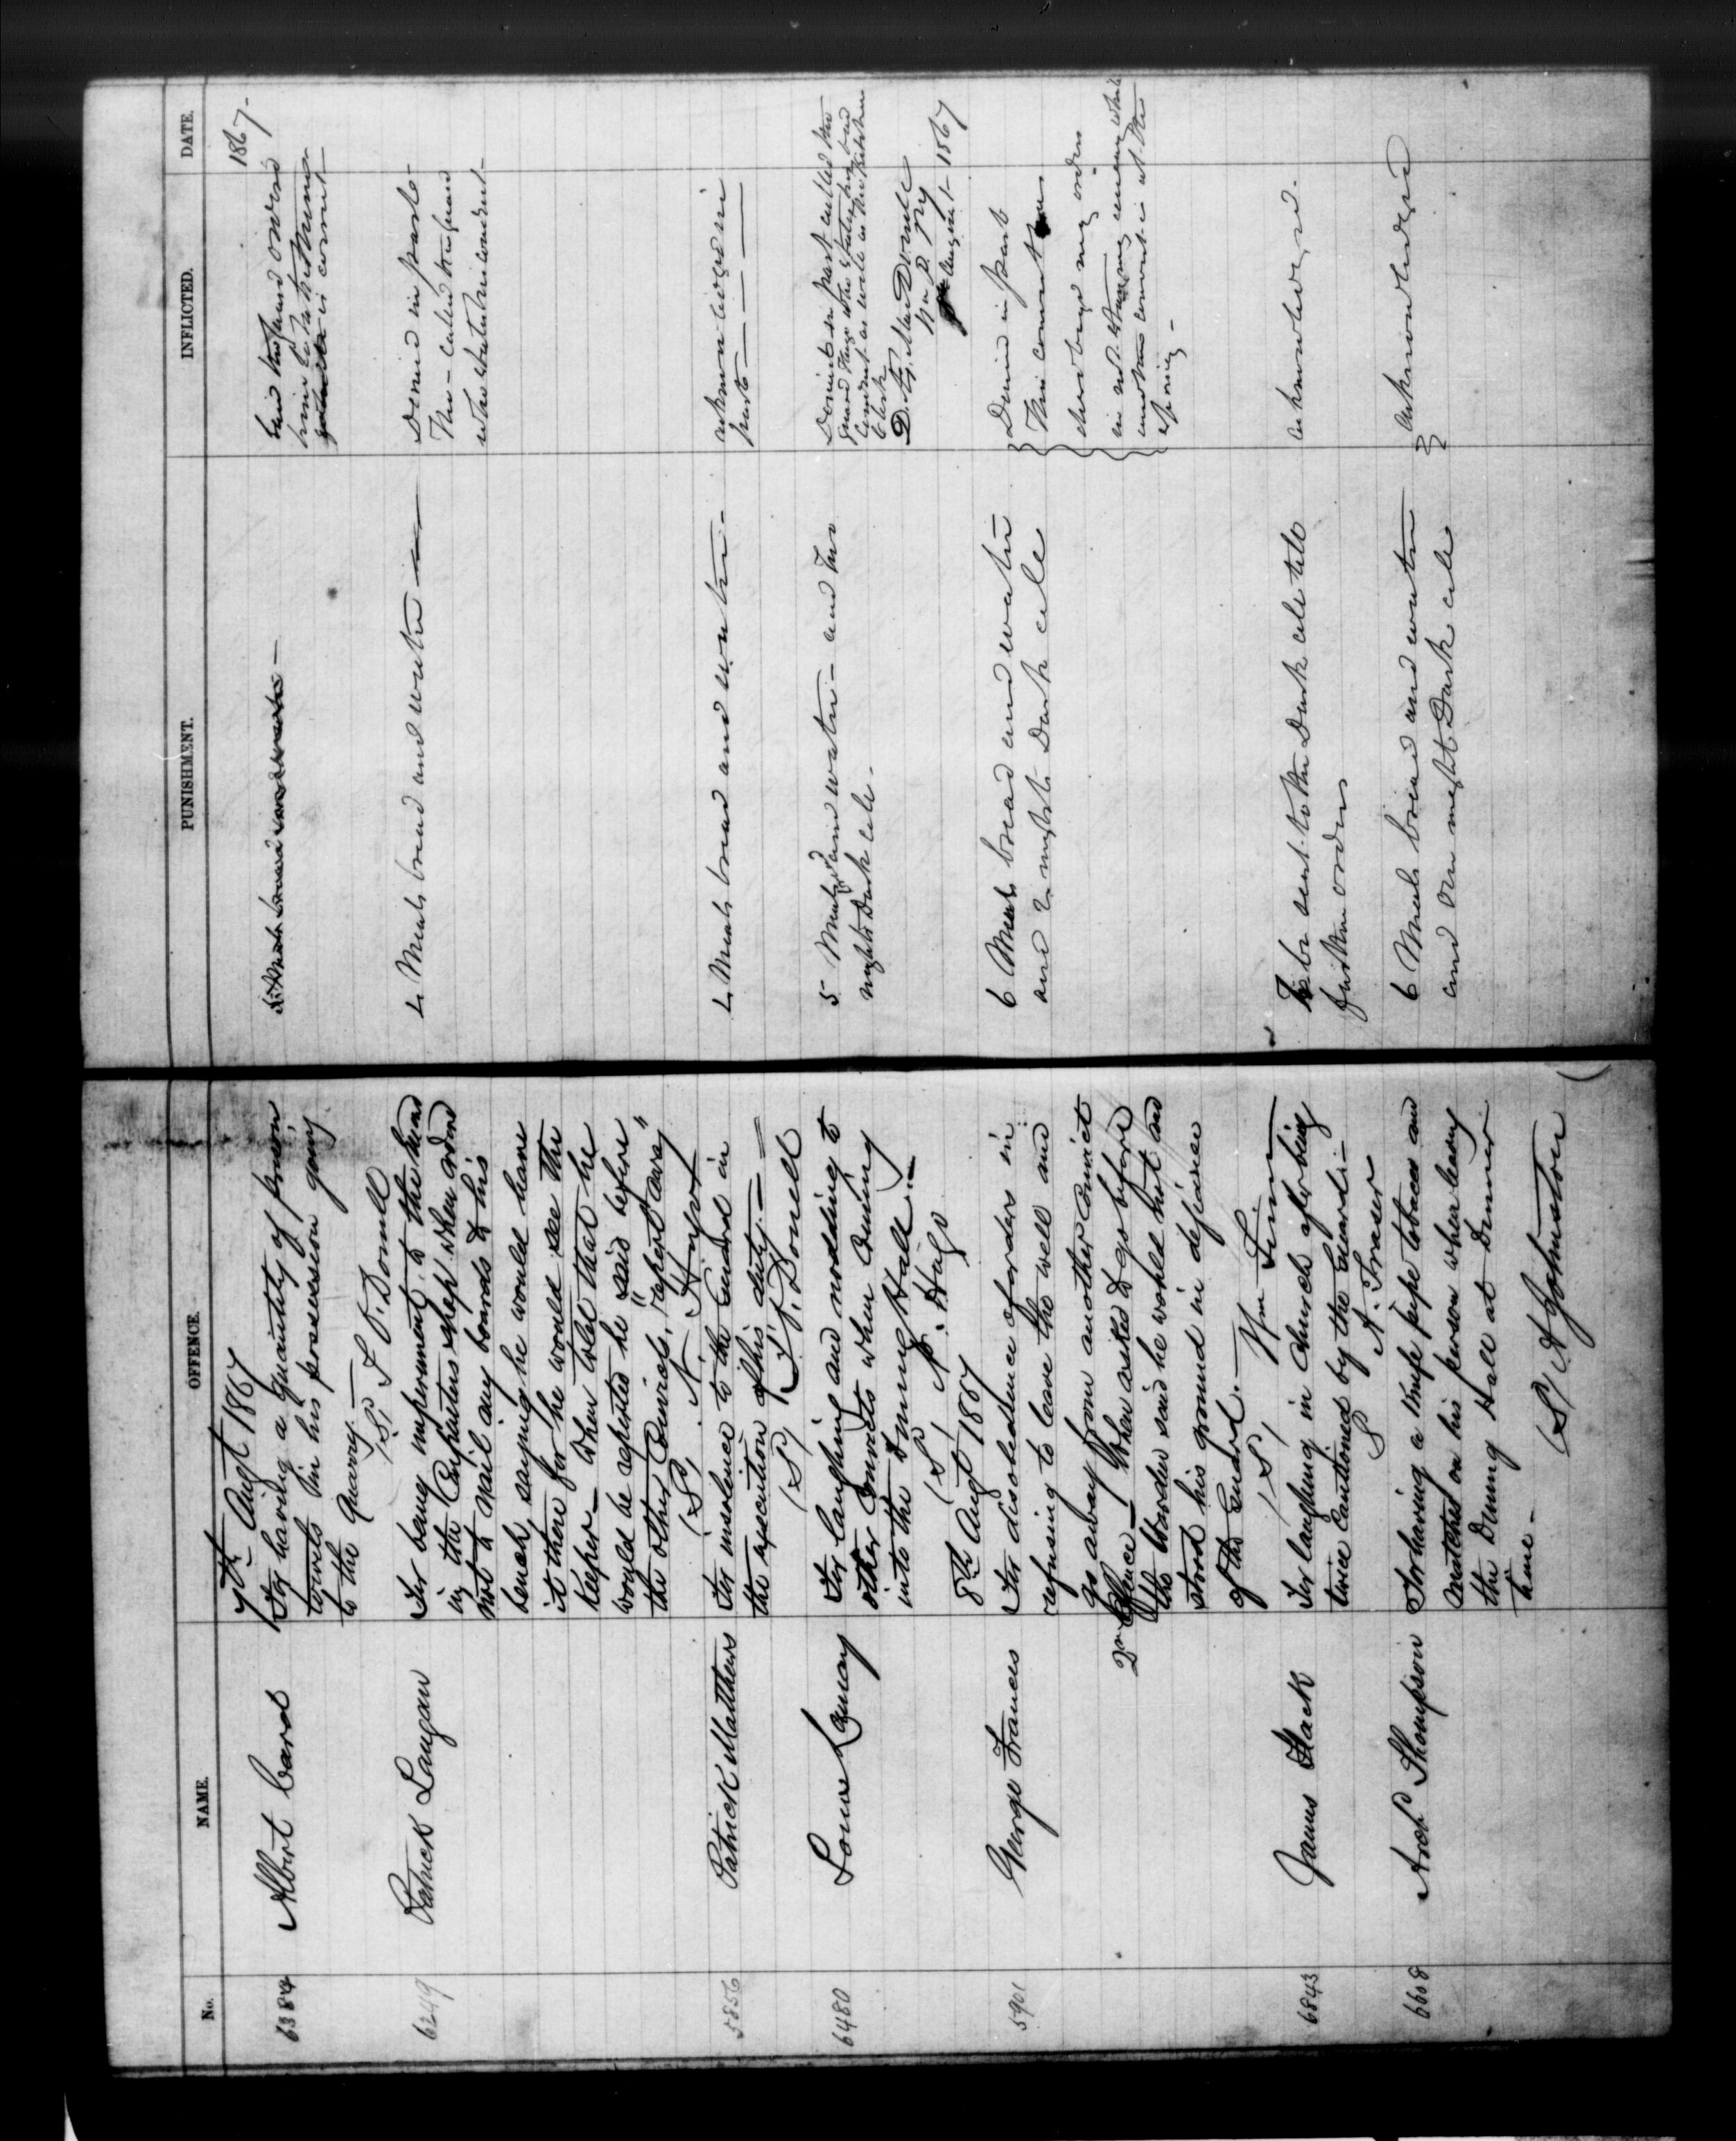 No.
NAME.
OFFENCE.
PUNISHMENT.
INFLICTED.
DATE.
7th Augt 1867
1867-
6384
Albert Card
For having a quantity of prison
towels in his possession going
to the Quarry. —
(S) T. O. Donnell
5 Meals bread and water —
Said the guard ordered
him to take them
is correct
6249
Patrick Langan
For being impertinent to the hired
in the Carpenters shop when ordered
not to nail any boards to his
bench, saying he would have
it there for he would see the
Keeper — When told that he
would be reported he said before
the other Convicts, "report away"
(S)
4 Meals bread and water —
Denied in part —
The — called the guard
who states his correct —
5856
Patrick Matthews
For insolence to the Guard in
the execution of his duty. —
(S) T. O. Donell
4 Meals bread and water —
acknowledged in
part —
6480
Louis Lemay
For laughing and nodding to
other Convicts when Coming
into the Dining Hall. —
(S) A. Halp
5 Meals and water — and two
nights Dark cell.
Denied in part called the
guard
correct as well as the Kitchen
Clerk
August 1867
8th Augt 1867
5901
George Frances
For disobedience of orders in
refusing to leave the well and
go away from another Convict
2nd Offence — When asked to go before
the Warden said he would not and
stood his ground in defiance
of the Guard. —
(S) Wm Finn
6 Meals bread and water
and 2 nights Dark cell
Denied in part
This convict
disobeyed my orders
in not
spring —
6843
James Hack
For laughing in Church after being
twice Cautioned by the Guard. —
S A. Fraser
To be sent to the Dark cell till
further orders
acknowledged.
6668
Arch Thompson
For having a knife pipe tobacco and
matches on his person when leaving
the Dining Hall at Dinner
time —
(S) A Johnston
6 Meals bread and water
and one night Dark cell
acknowledged